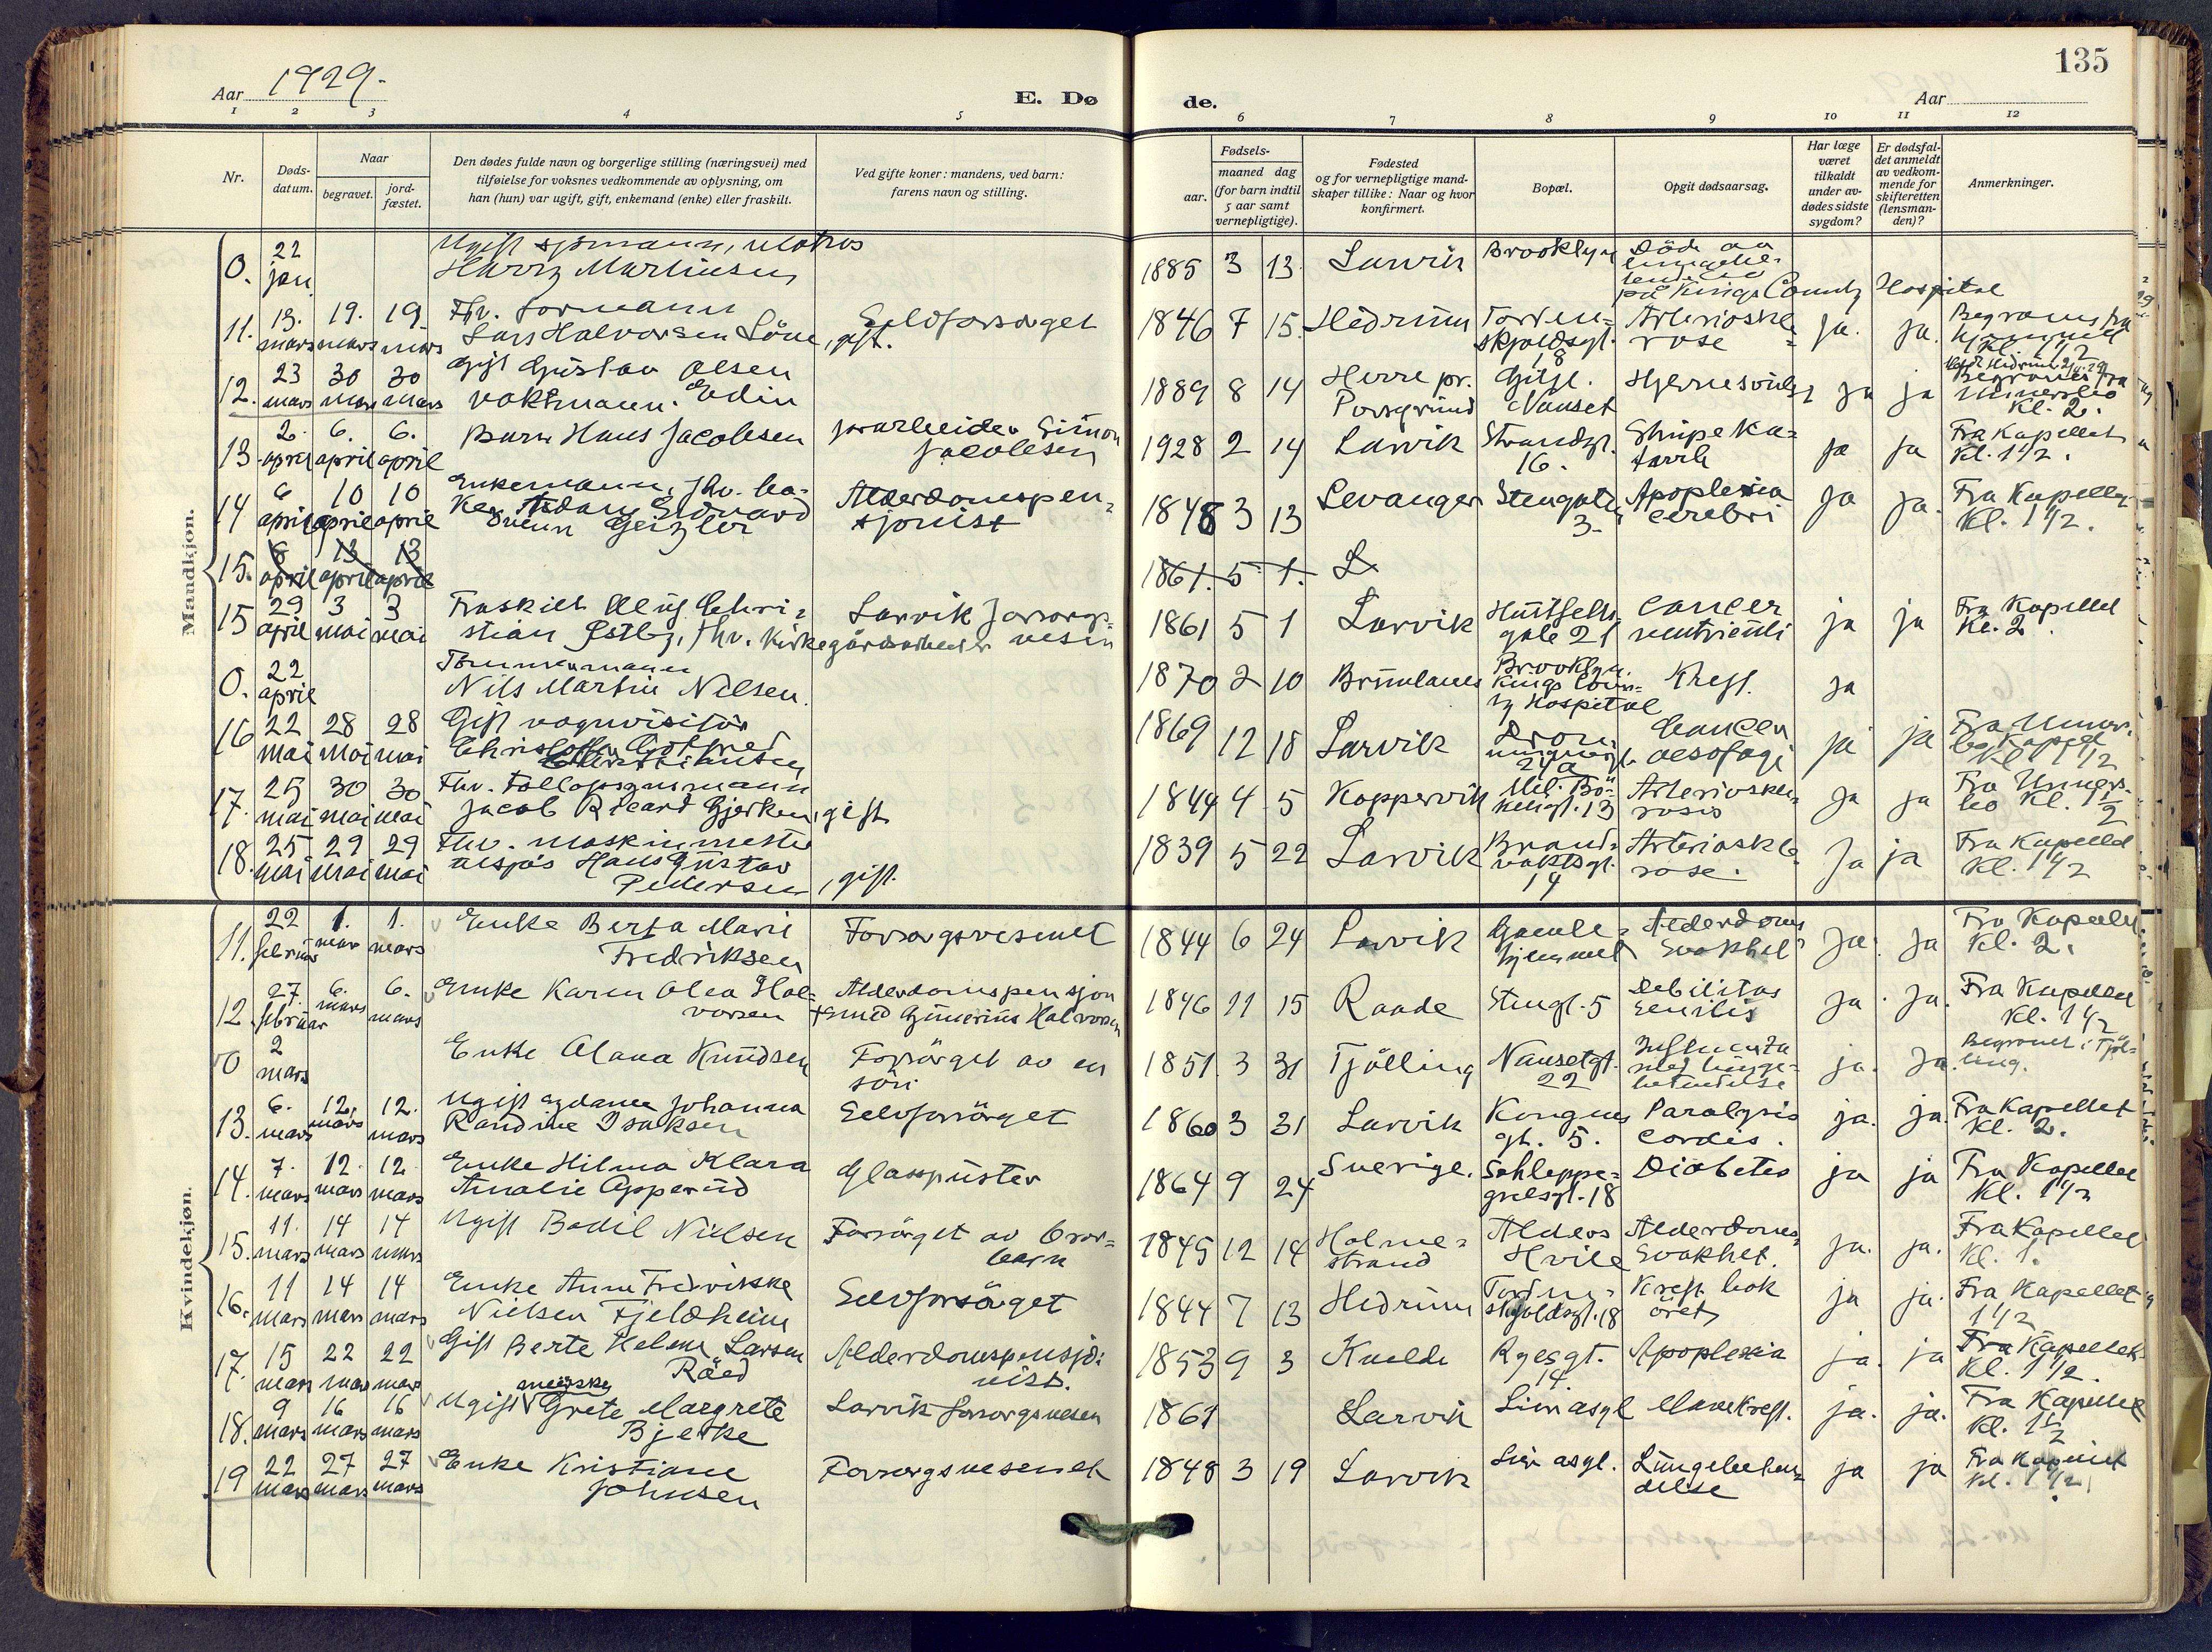 135
Aar 1929.
E. Dø
de.
Aar
1 2 3 4 5 6 7 8 9 10 11 12
Nr.
Døds-
datum.
Naar
begravet.
jord-
fæstet.
Den dødes fulde navn og borgerlige stilling (næringsvei) med
tilføielse for voksnes vedkommende av oplysning, om
han (hun) var ugift, gift, enkemand (enke) eller fraskilt.
Ved gifte koner: mandens, ved barn:
farens navn og stilling.
Fødsels-
aar.
maaned dag
(for barn indtil
5 aar samt
vernepligtige).
Fødested
og for vernepligtige mand-
skaper tillike: Naar og hvor
konfirmert.
Bopæl.
Opgit dødsaarsag.
Har læge
været
tilkaldt
under av-
dødes sidste
sygdom?
Er dødsfal-
det anmeldt
av vedkom-
mende for
skifteretten
(lensman-
den)?
Anmerkninger.
Mandkjøn.
0. 22 jan Ugift sjømann, matros
Harry Martinsen 1885 3 13 Larvik Brooklyn Död av
på Kings County Hospital
11. 13. mars 19. mars 19 mars Fhv. formann
Lars Halvorsen , gift. Selvforsörget 1846 7 15. Hedrum Torden=
skjoldsgt. 18 Arterioskle=
rose ja. ja. Begraves fra
hjemmet
Kl. 1 1/2
12. 23 mars 30 mars 30 mars Gift Gustav Olsen
vaktmann. Edin 1889 8 14 Herre pr.
Porsgrund Nanset ja ja Begraves fra
Kl. 2.
13. 2. april 6. april 6. april Barn Hans Jacobsen Simon
Jacobsen 1928 2 14 Larvik Strandgt.
16. Strupeka=
tarrh ja ja Fra Kapellet
Kl. 1 1/2.
14 6 april 10 april 10 april Enkemann, fhv. ba=
ker Adam Edvard
Svenn Geizler Alderdomspen=
sjonist 1848 3 13 Levanger Stengaten
3. Apoplexia
cerebri ja ja. Fra Kapellet
Kl. 1 1/2.
15. 8 april 13 april 13 april 1861. 5 1. L
15 29 april 3 mai 3 mai Fraskilt Chri=
stian Östby, fhv. kirkegårdsarbeider Larvik forsorgs=
vesen 1861 5 1 Larvik Huitfelts
gate 21 cancer
ventrienli ja ja Fra Kapellet
Kl. 2.
0. 22 april Tömmermann
Nils Martin Nilsen. 1870 2 10 Brunlanes Brooklyn.
Kings Coun=
ty Hospital Kreft. ja
16 22 mai 28 mai 28 mai Gift vognvisitör
Christoffer Gotfred
Christiansen 1869 12 18 Larvik Dron=
ningensgt.
24 a Cancer
oesofagi ja ja
Kl. 1 1/2
17. 25 mai 30 mai 30 mai Fhv. tollopsynsmann
Jacob Ricard Gjerken, gift 1844 4 5 Koppervik
13 Arteriosklerosis ja ja Kl. 1 1/2
18. 25 mai 29 mai 29 mai Fhv. maskinmester
Hans Gustav
Pedersen, gift. 1839 5 22 Larvik Brand=
vaktsgt.
14 Arterioskle=
rose. ja ja Fra Kapellet
Kl. 1 1/2
Kvindekjøn.
11. 22 februar 1. mar 1. mars Enke Berta Marie
Fredriksen Forsorgsvesenet 1844 6 24 Larvik Gamle=
hjemmet Alderdoms
svakhet ja. ja Fra Kapellet
Kl. 2.
12. 27. februar 6. mars 6. mars Enke Karen Olea Hal=
vorsen Alderdomspensjon
smed Gunerius Halvorsen 1846 11 15 Raade Stengt. 5 Debilitas
senilis ja. ja. Fra Kapellet
Kl. 1 1/2
0 2 mars Enke Olava Knudsen Forsörget av en
sön 1851. 3 31 Tjölling Nansetgt.
22 Influenza
med lunge=
betendelse ja. ja. Begravet i Tjöl=
ling.
13. 6. mars 12. mars 12. mars Ugift sydame Johanna
Randine Isaksen Selvforsörget 1860 3 31 Larvik Kongens
gt. 5. Paralysis
cordis. ja. ja. Fra Kapellet
Kl. 2.
14. 7. mars 12. mars 12 mars Enke Hilma Klara
Amalie Apperud Glasspuster 1864 9 24 Sverige. Schleppe=
grelsgt. 18 Diabetes ja ja Fra Kapellet
Kl. 1 1/2
15. 11. mars 14 mars 14 mars Ugift Bodil Nielsen Forsörget av bror=
barn 1845 12 14 Holme=
strand Alders
Hvile Alderdoms
svakhet. ja. ja. Fra Kapellet
Kl. 1.
16. 11 mars 14 mars 14 mars Enke Anne Fredrikke
Nielsen Fjeldheim Selvforsörget 1844 7 13 Hedrum Torden=
skjoldsgt. 18 Kreft bak
öret ja ja. Fra Kapellet
1 1/2
17. 15 mars 22 mars 22 mar Gift Berte Helene Larsen
Röed Alderdomspensjo=
nist. 1853 9 3 Ryesgt.
14. Apoplexia ja. ja Fra Kapellet
Kl. 1 1/2.
18. 9 mars 16 mars 16 mars Ugift Grete Margrete
Bjerke Larvik forsorgsvesen 1861 Larvik Lien asyl Mavekreft. ja. ja. Fra Kapellet
Kl. 1 1/2
19 22 mars 27 mars 27 mars Enke Kristiane
Johnsen Forsorgsvesenet 1848 3 19 Larvik Lien asyl. Lungebeten=
delse ja ja Fra Kapellet
Kl. 1 1/2.